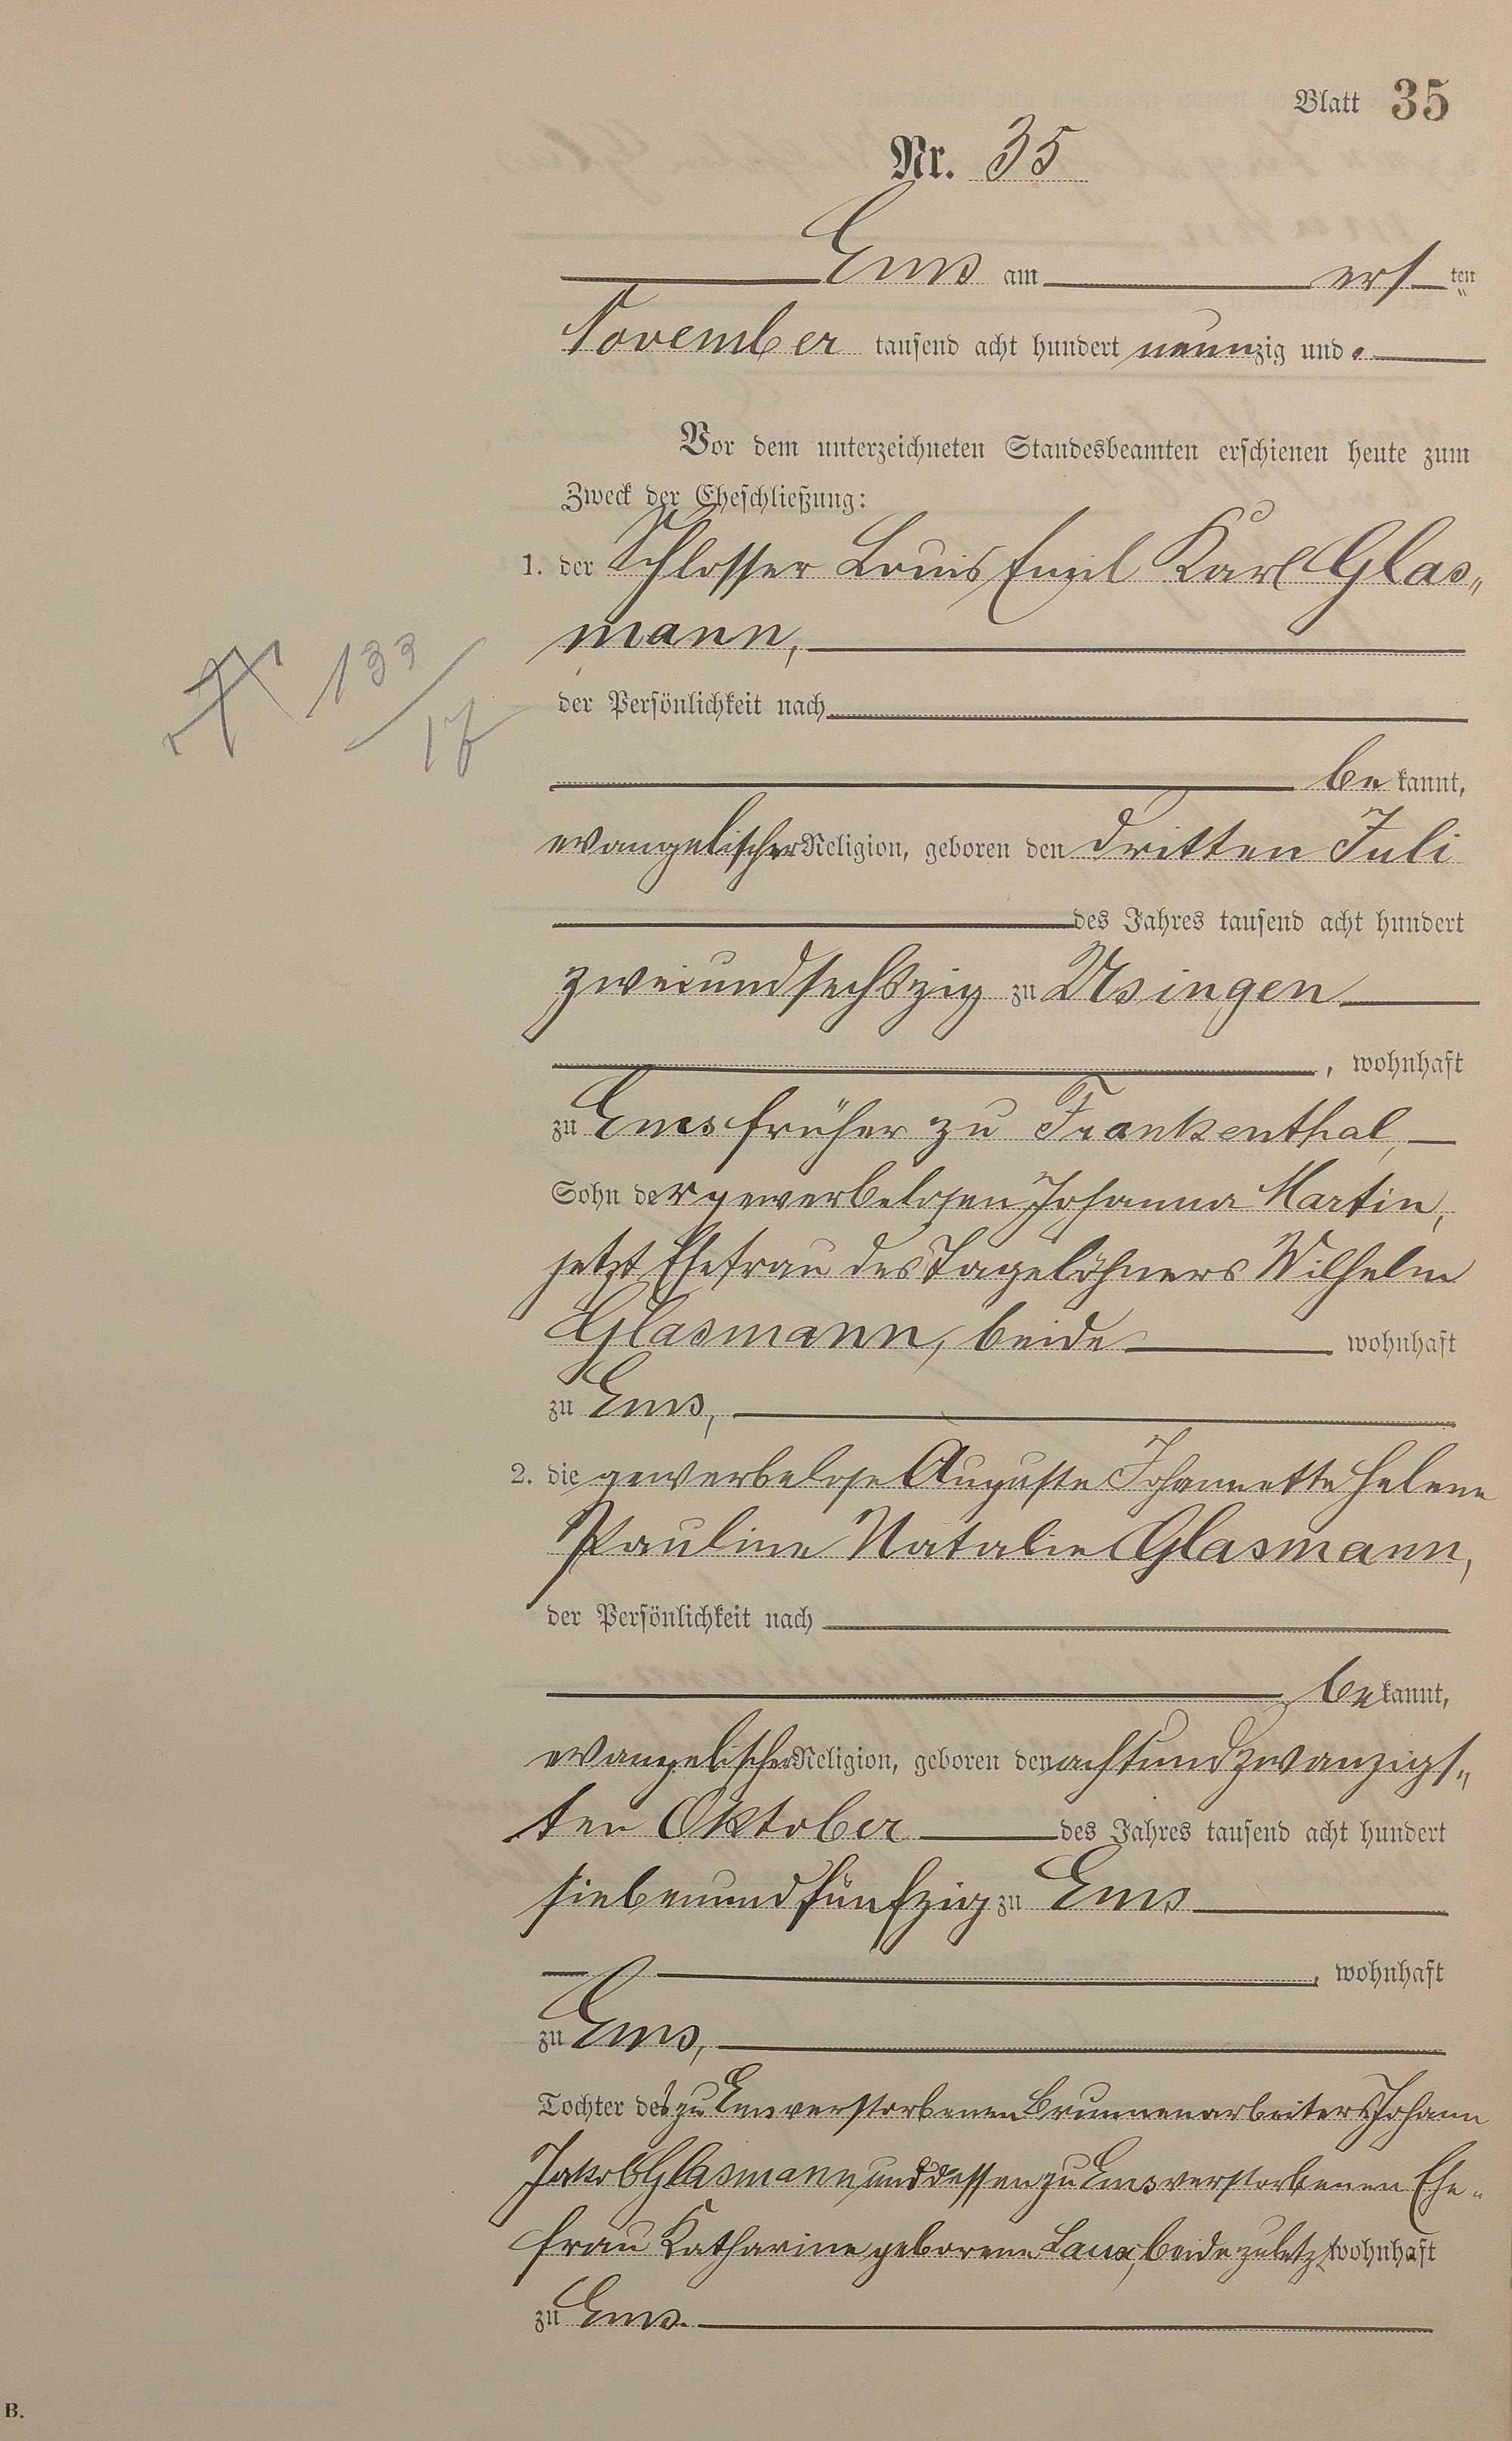 Blatt 35
Nr. 35
Ems am ersten
November tausend acht hundert neunzig und
Vor dem unterzeichneten Standesbeamten erschienen heute zum
Zweck der Eheschließung:
1. der Schlosser Louis Emil Karl Glas„
mann,
133
17
der Persönlichkeit nach
bekannt,
evangelischer Religion, geboren den dritten Juli
des Jahres tausend acht hundert
zweiundsechszig zu Usingen
, wohnhaft
zu Ems früher zu Frankenthal,
Sohn der gewerbelosen Johanna Martin,
jetzt Ehefrau des Tagelöhners Wilhelm
Glasmann, beide wohnhaft
zu Ems,
2. die gewerbelose Auguste Johannette Helene
Pauline Natalie Glasmann,
der Persönlichkeit nach
bekannt,
evangelischer Religion, geboren den achtundzwanzigs„
ten Oktober des Jahres tausend acht hundert
siebenundfünfzig zu Ems
, wohnhaft
zu Ems,
Tochter des zu Ems verstorbenen Brunnenarbeiters Johann
Jakob Glasmann und dessen zu Ems verstorbenen Ehe„
frau Katharine geborene Laux, beide zuletzt wohnhaft
zu Ems.
B.